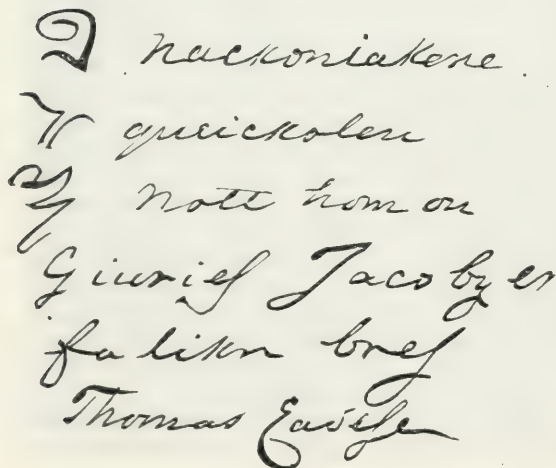 nackoniakene.
queickolen
nott hom on
Giurief Jacobyen
fa likn bref
Thomas